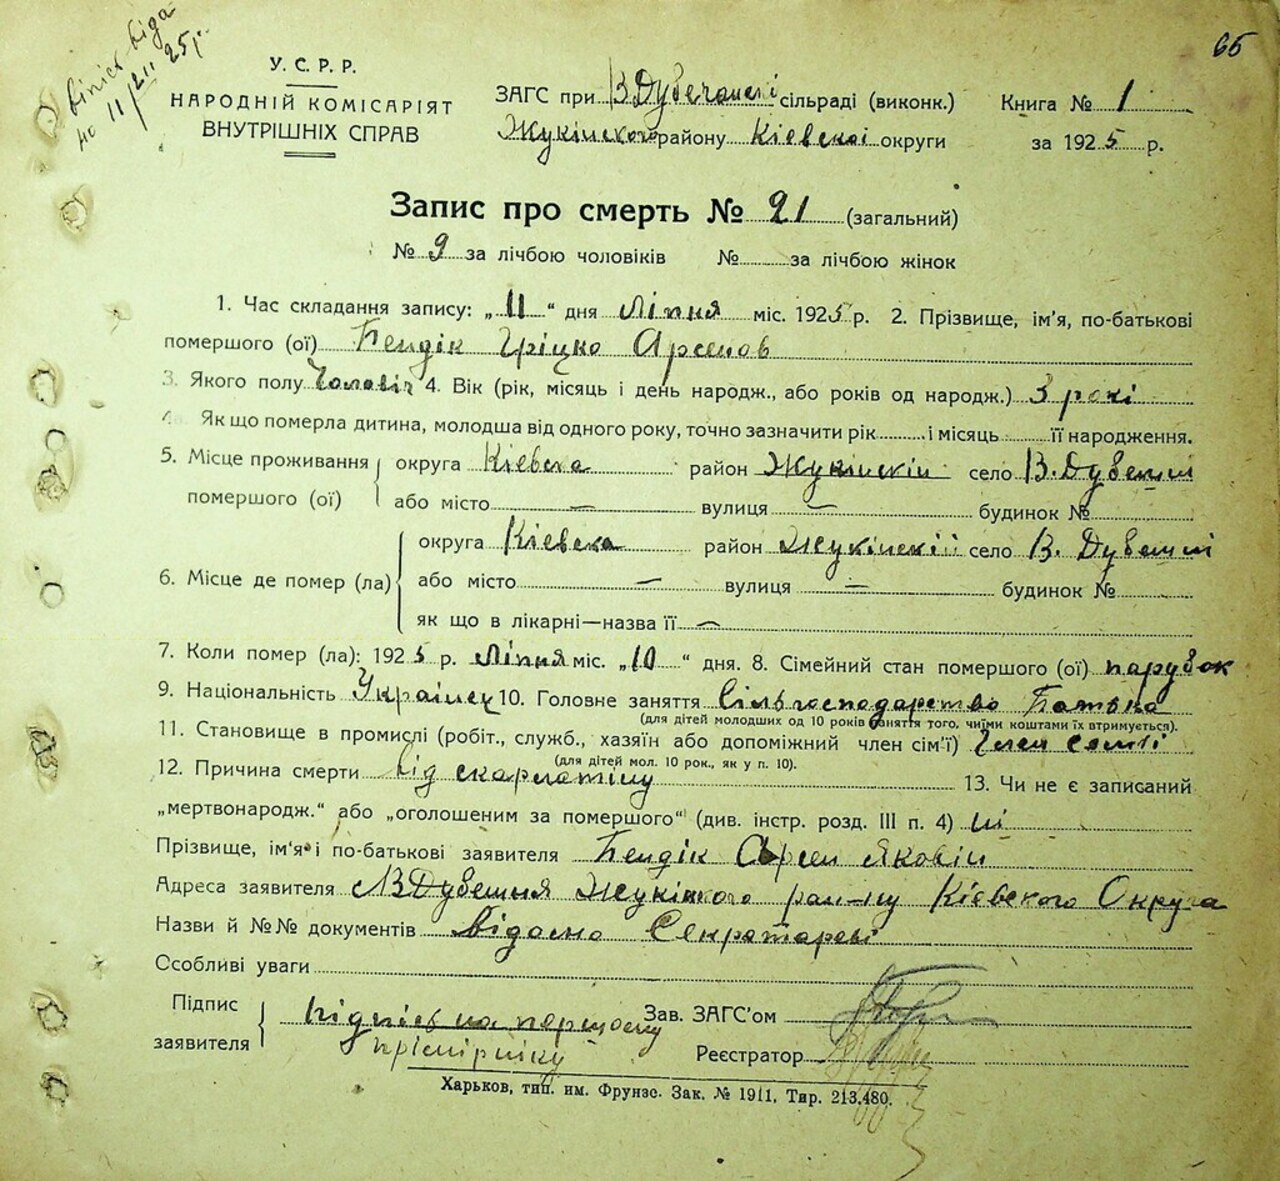 65
У. С. Р. Р.
НАРОДНІЙ КОМІСАРІЯТ
ВНУТРІШНІХ СПРАВ
ЗАГС при В Дубечанскі сільраді (виконк.) Книга № 1
Жукінского району Кіевскоі округи за 1925 р.
Запис про смерть № 21 (загальний)
№ 9 за лічбою чоловіків № за лічбою жінок
1. Час складання запису: „11“ дня Ліпня міс. 1925 р. 2. Прізвище, ім'я, по-батькові
помершого (ої) Бендік Гріцко Арсенов
3. Якого полу Чоловіч 4. Вік (рік, місяць і день народж., або років од народж.) 3 рокі
Як що померла дитина, молодша від одного року, точно зазначити рік і місяць її народження.
5. Місце проживання помершого (ої) округа Кіевска район Жукінскій село В. Дубешні
або місто — вулиця — будинок №
6. Місце де помер (ла) округа Кіевска район Жукінскій село В. Дубешні
або місто — вулиця — будинок №
як що в лікарні—назва її —
7. Коли помер (ла): 1925 р. Ліпня міс. „10“ дня. 8. Сімейний стан помершого (ої) парубок
9. Національність Українец 10. Головне заняття Сільгосподарство Батька
(для дітей молодших од 10 років заняття того, чиїми коштами їх втримується).
11. Становище в промислі (робіт., служб., хазяїн або допоміжний член сім'ї) Член семьі
(для дітей мол. 10 рок., як у п. 10).
12. Причина смерти від скарлатіну 13. Чи не є записаний
„мертвонародж.“ або „оголошеним за помершого“ (див. інстр. розд. III п. 4) ні
Прізвище, ім'я і по-батькові заявителя Бендік Арсен Яковіч
Адреса заявителя В Дубешня Жукінского рай-ну Кіевского Округа
Назви й №№ документів Відомо Секротареві
Особливі уваги
Підпис заявителя підпісь на першому Зав. ЗАГС'ом
прімірніку Реєстратор
Харьков, тип. им. Фрунзе. Зак. № 1911, Тир. 213.480.